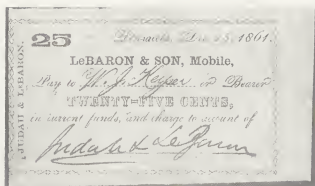 JUDAH & LeBARON.
25 Dec 1861.
LeBARON & SON, Mobile,
Pay to W. J. Keyser or Bearer
TWENTY-FIVE CENTS,
in current funds, and charge to account of
Judah & LeBaron